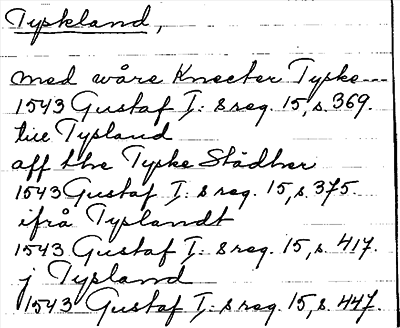 Tyskland,
med wåre Knecter Tyske---
1543 Gustaf I: s reg. 15, s. 369.
till Tysland
aff the Tyske Städher
1543 Gustaf I: s reg. 15, s. 375.
ifrå Tyslandt
1543 Gustaf I: s reg. 15, s. 417.
j Tysland
1543 Gustaf I: s reg. 15, s. 447.